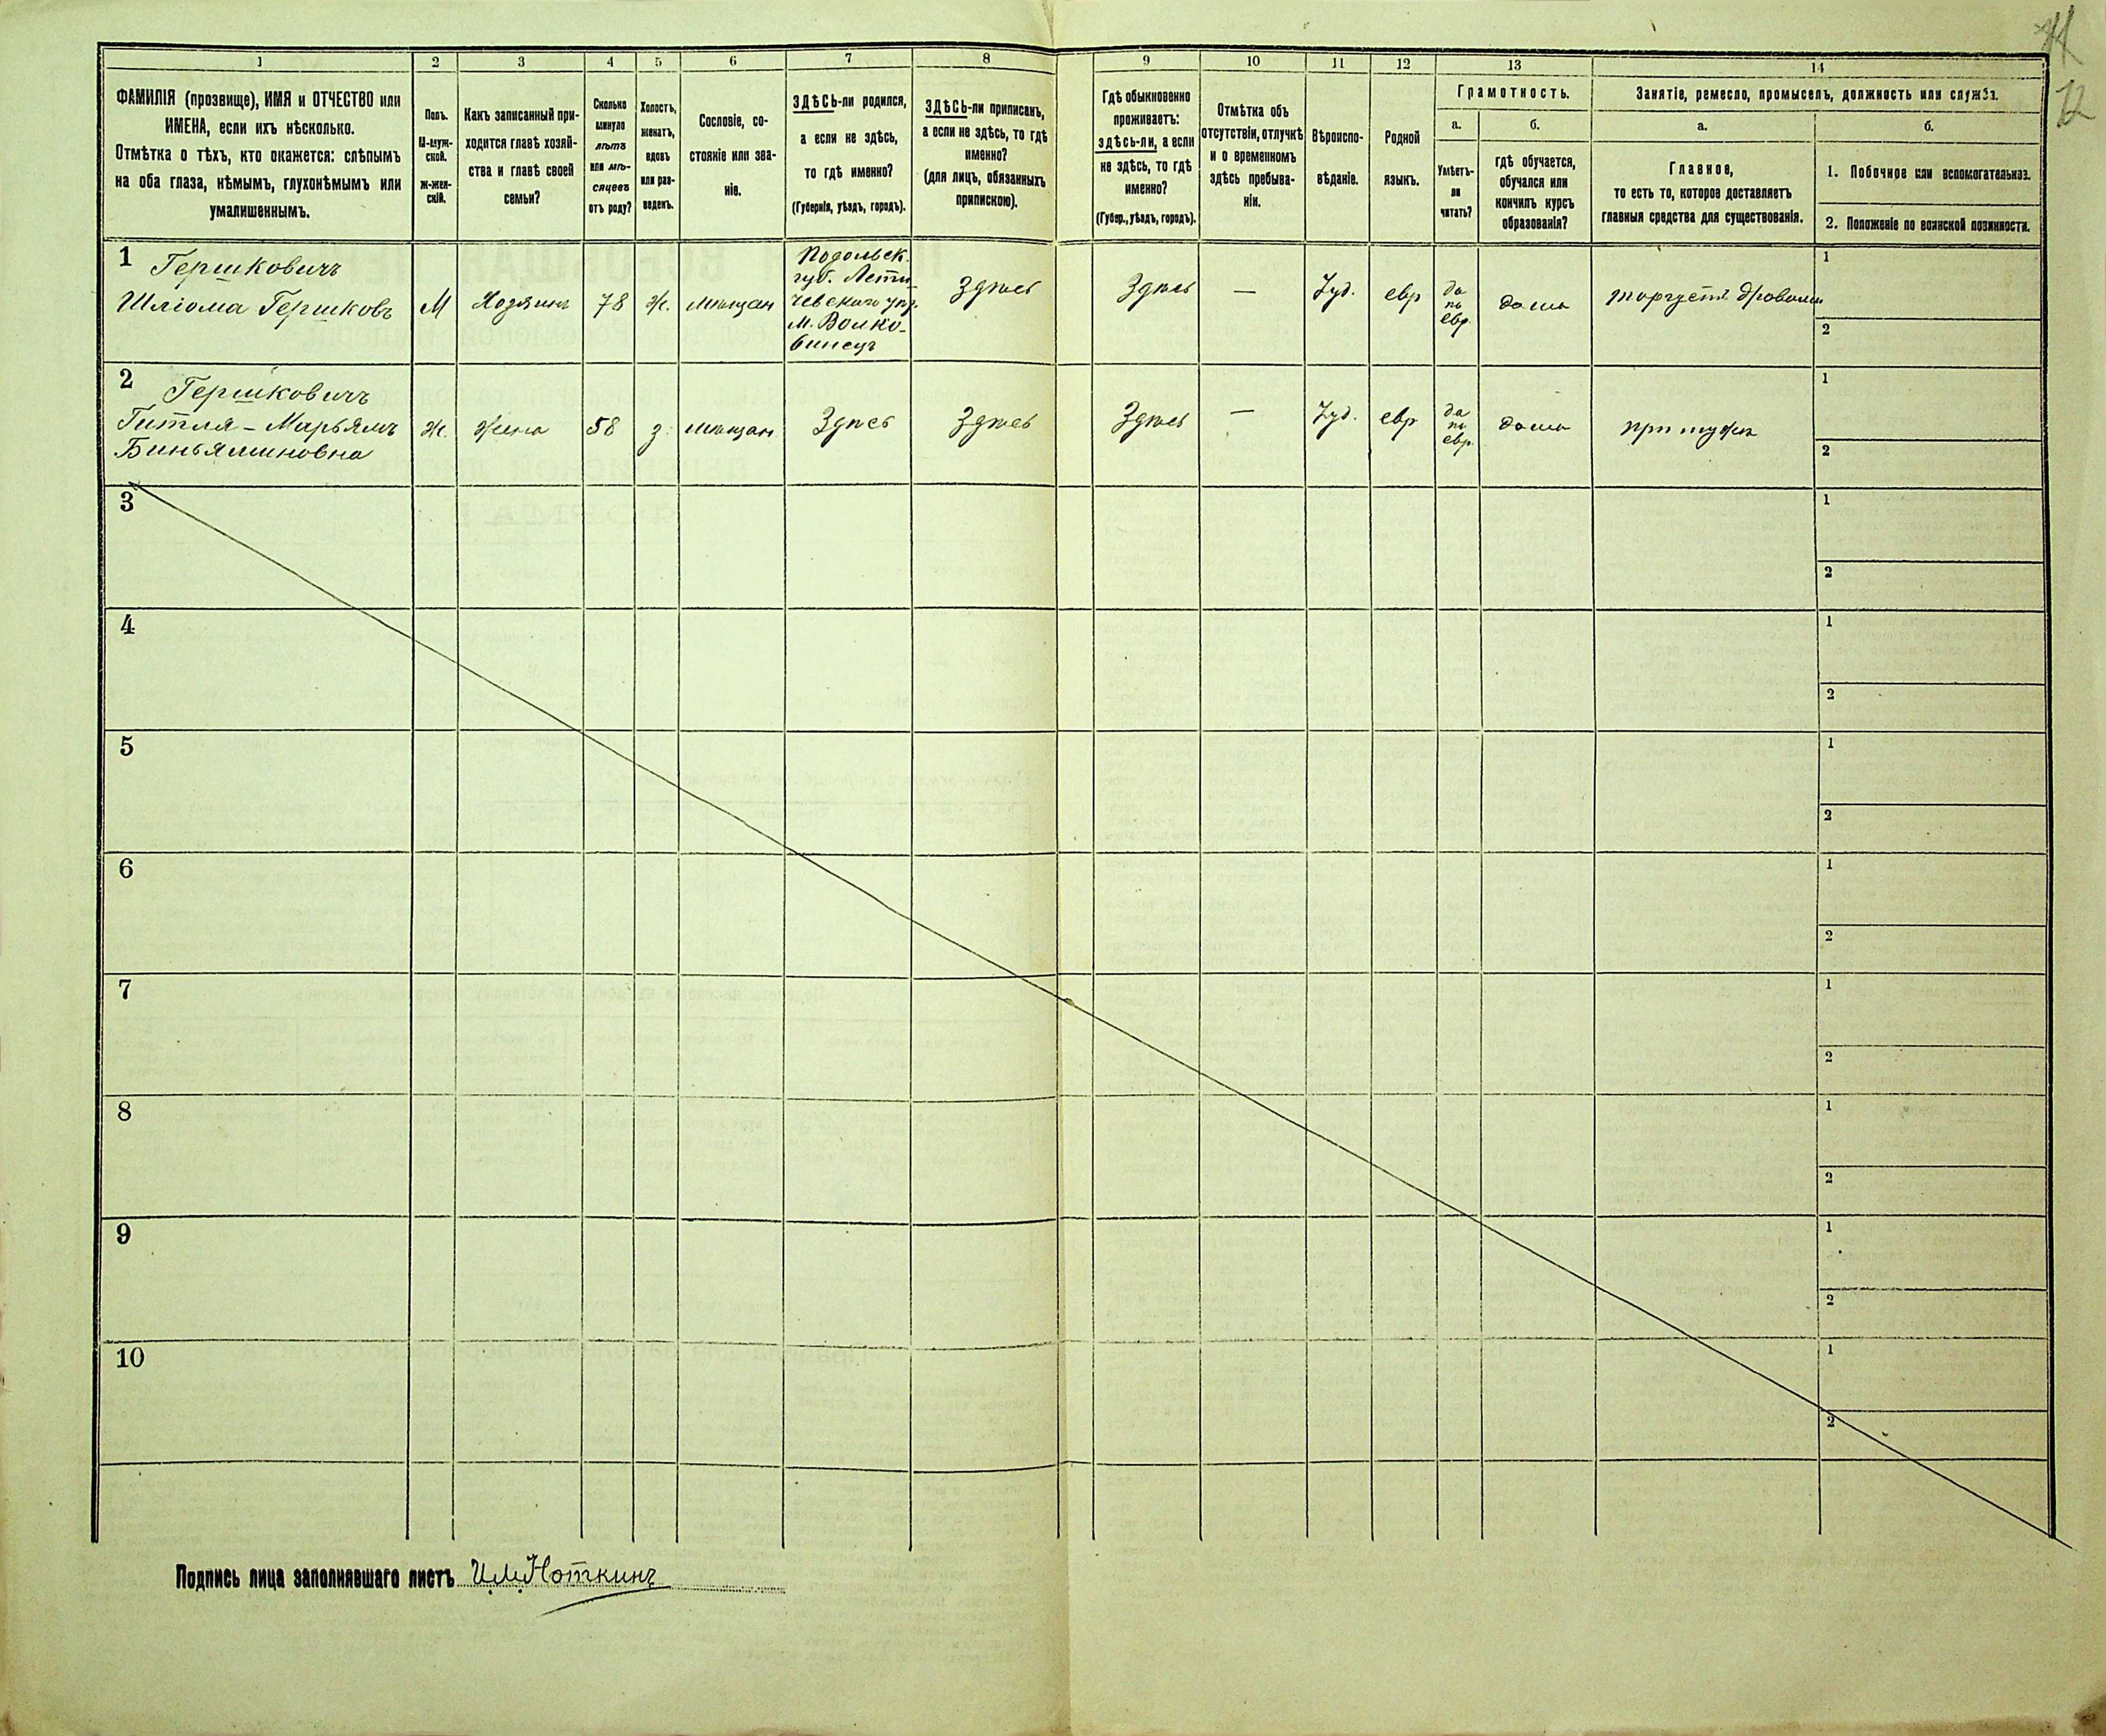 1 2 3 4 5 6 7 8 9 10 11 12 13 14
ФАМИЛІЯ (прозвище), ИМЯ и ОТЧЕСТВО или
ИМЕНА, если ихъ нѣсколько.
Отмѣтка о тѣхъ, кто окажется: слѣпымъ
на оба глаза, нѣмымъ, глухонѣмымъ или
умалишеннымъ.
Полъ.
М-муж-
ской.
ж-жен-
скій.
Какъ записанный при-
ходится главѣ хозяй-
ства и главѣ своей
семьи?
Сколько
минуло
лѣтъ
или мѣ-
сяцевъ
отъ роду?
Холостъ,
женатъ,
вдовъ
или раз-
веденъ.
Сословіе, со-
стояніе или зва-
ніе.
ЗДѢСЬ-ли родился,
а если не здѣсь,
то гдѣ именно?
(Губернія, уѣздъ, городъ).
ЗДѢСЬ-ли приписанъ,
а если не здѣсь, то гдѣ
именно?
(для лицъ, обязанныхъ
припискою).
Гдѣ обыкновенно
проживаетъ:
здѣсь-ли, а если
не здѣсь, то гдѣ
именно?
(Губер., уѣздъ, городъ).
Отмѣтка объ
отсутствіи, отлучкѣ
и о временномъ
здѣсь пребыва-
ніи.
Вѣроиспо-
вѣданіе.
Родной
языкъ.
Грамотность.
а.
Умѣетъ-
ли
читать?
б.
гдѣ обучается,
обучался или
кончилъ курсъ
образованія?
Занятіе, ремесло, промыселъ, должность или служба.
а.
Главное,
то есть то, которое доставляетъ
главныя средства для существованія.
б.
1. Побочное или вспомогательное.
2. Положеніе по воинской повинности.
1
Гершковичъ
Шліома Гершковъ
М
Хозяинъ
78
ж.
мѣщан
Подольск.
губ. Лети-
чевскаго уѣз.
м. Волко-
винецъ
Здѣсь
Здѣсь
—
Іуд.
евр
да
по
евр.
дома
торгуетъ дровами
1
2
2
Гершковичъ
Гитля - Марьямъ
Биньяминовна
Ж.
жена
58
з.
мѣщан
Здѣсь
Здѣсь
Здѣсь
—
Іуд.
евр
да
по
евр.
дома
при мужѣ
1
2
3
1
2
4
1
2
5
1
2
6
1
2
7
1
2
8
1
2
9
1
2
10
1
2
Подпись лица заполнявшаго листъ И.М.Ноткинъ